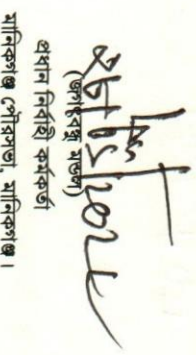 (জগৎবন্ধু মন্ডল)
প্রধান নির্বাহী কর্মকর্তা
মানিকগঞ্জ পৌরসভা, মানিকগঞ্জ।